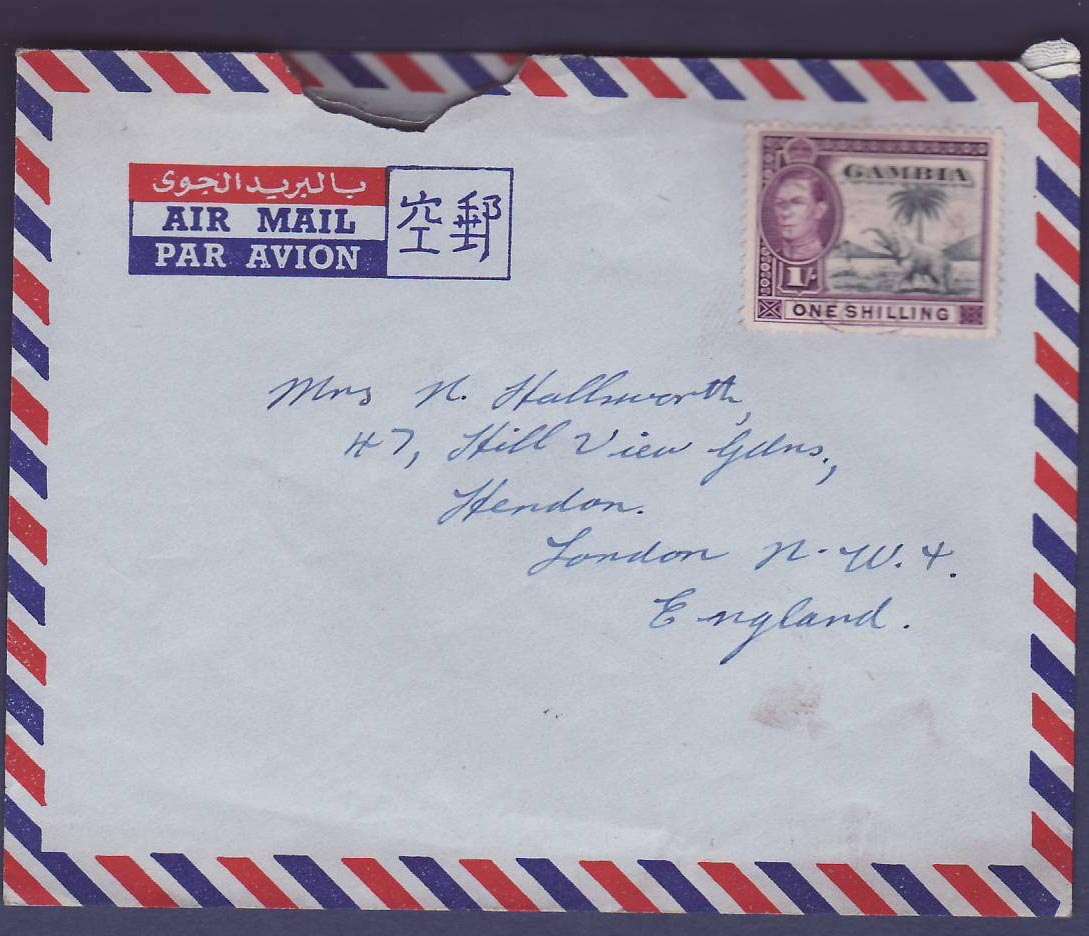 بالبريد الجوى
AIR MAIL
PAR AVION
空郵
GAMBIA
1/-
ONE SHILLING
Mrs N. Hallsworth,
47, Hill View Gdns.,
Hendon.
London N.W.4.
England.